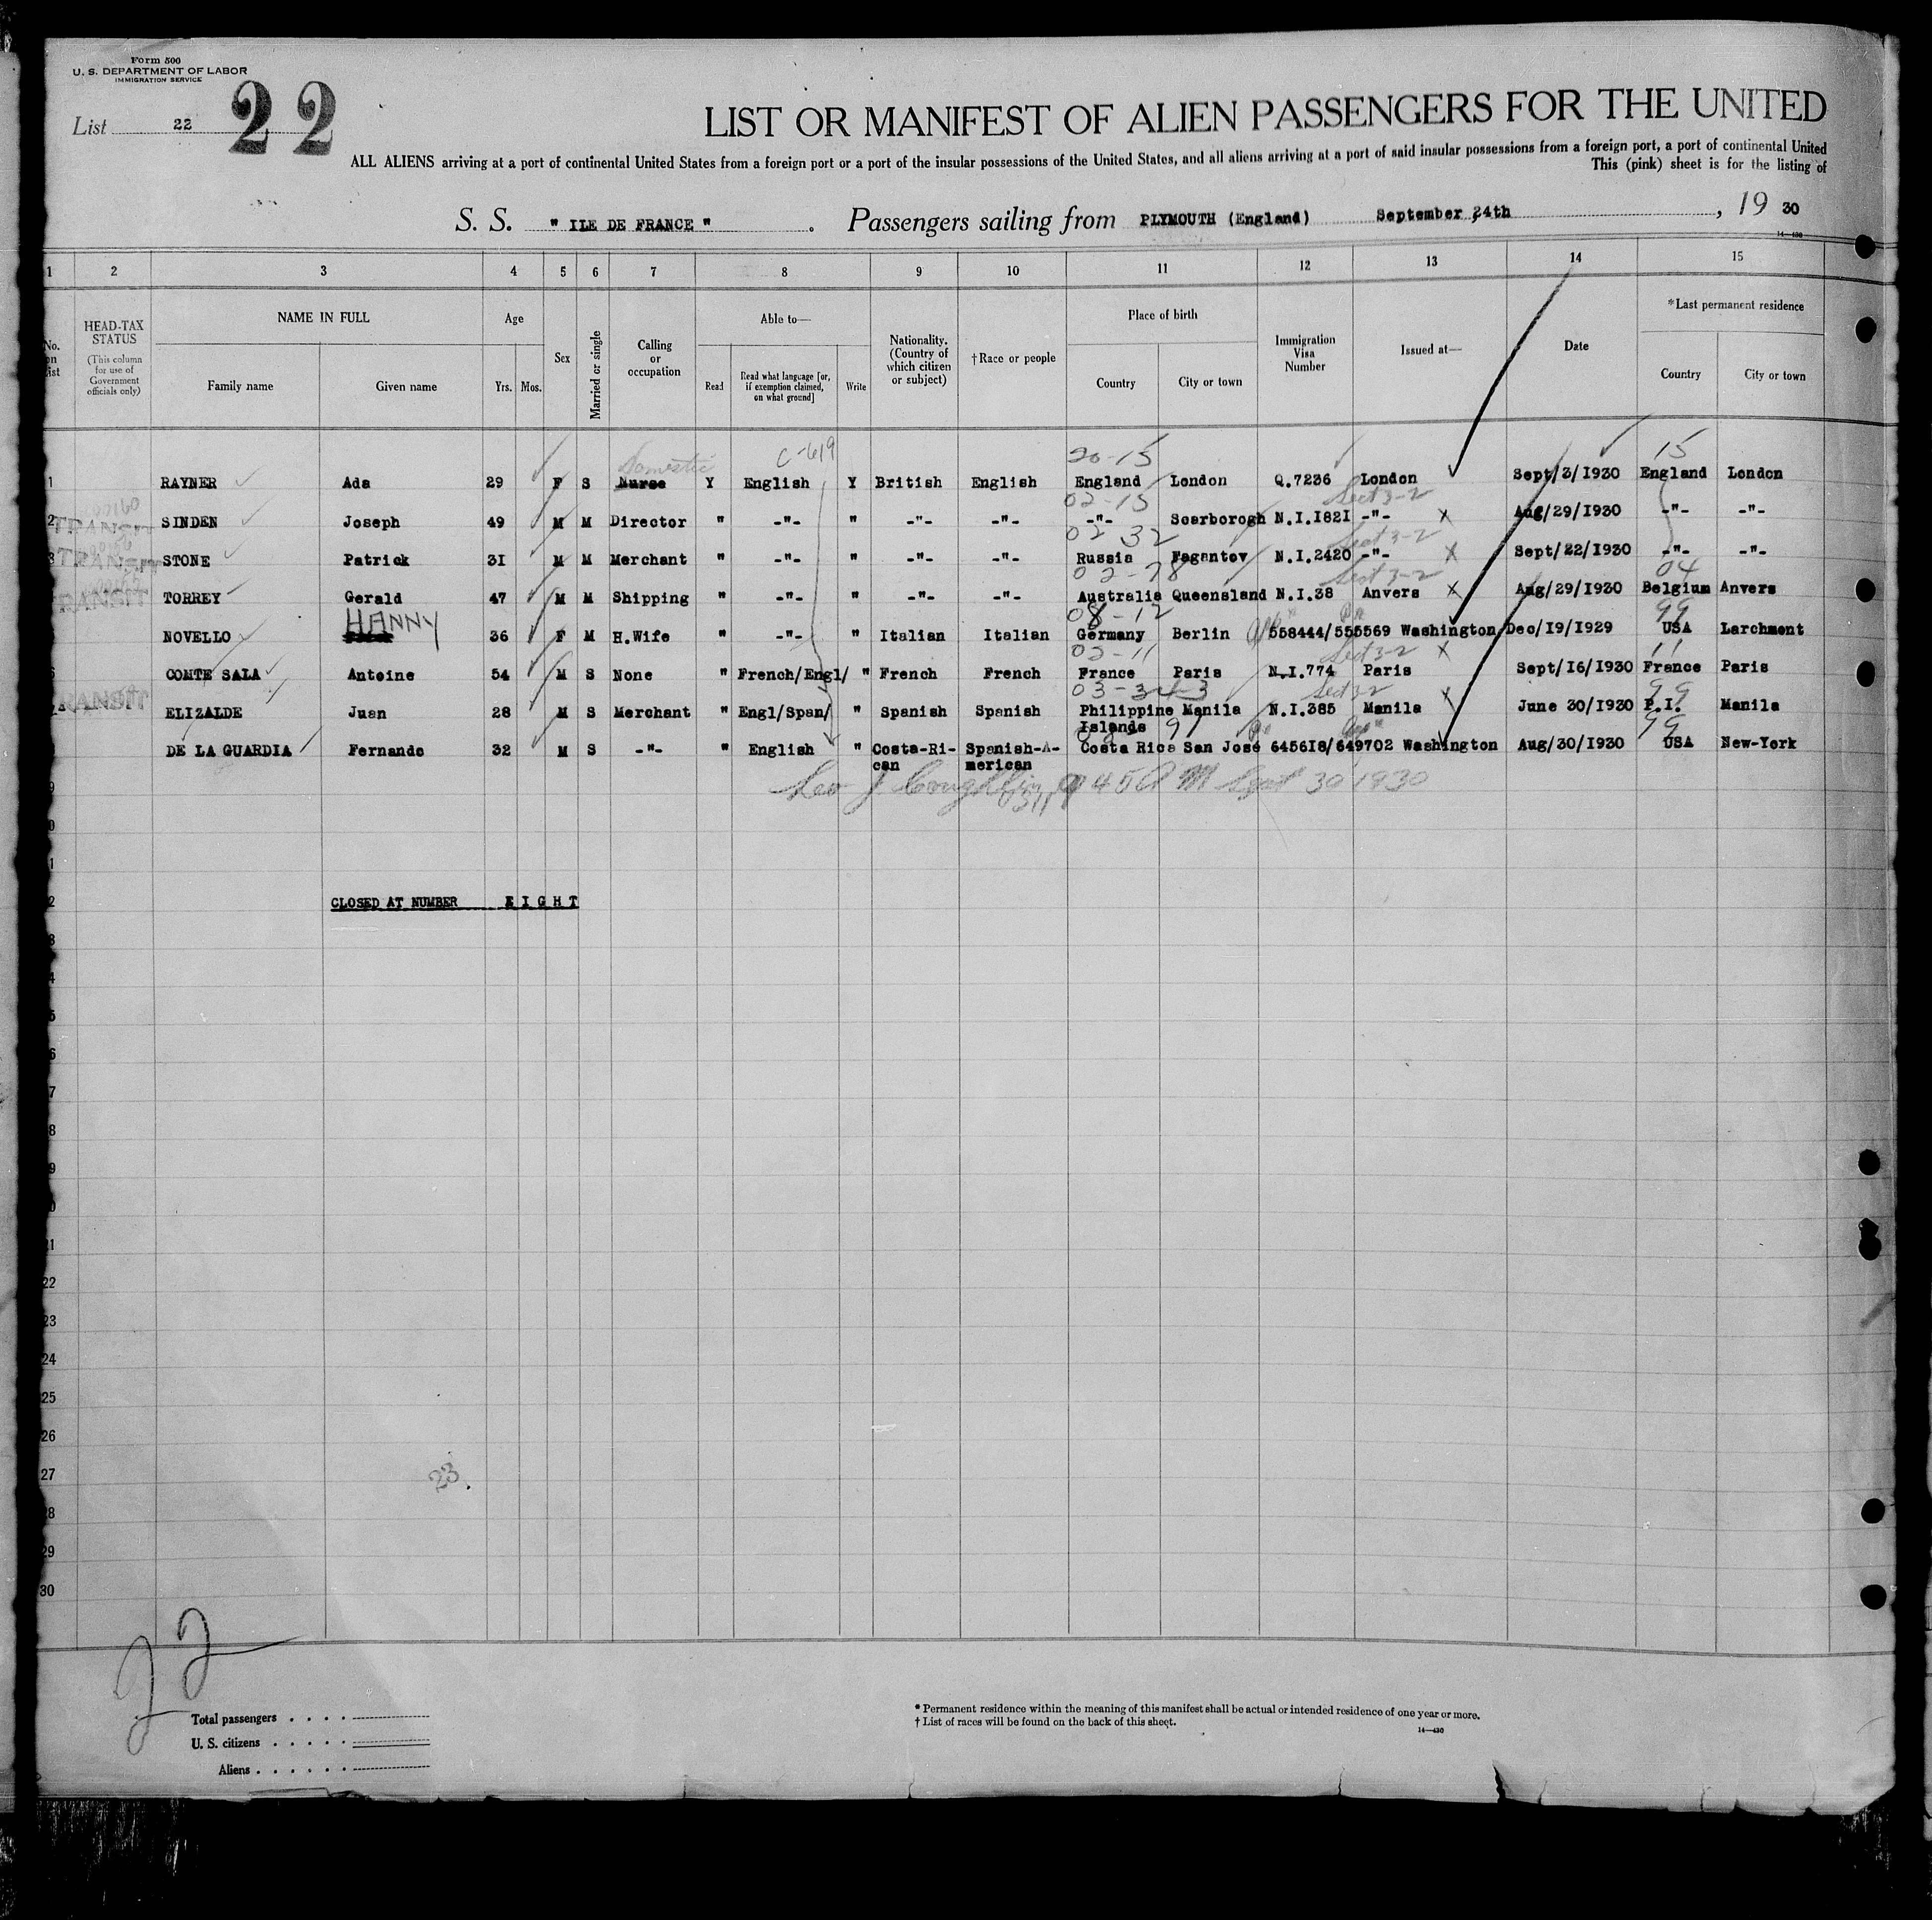 Form 500
U. S. DEPARTMENT OF LABOR
IMMIGRATION SERVICE
List 22 22
LIST OR MANIFEST OF ALIEN PASSENGERS FOR THE UNITED
ALL ALIENS arriving at a port of continental United States from a foreign port or a port of the insular possessions of the United States, and all aliens arriving at a port of said insular possessions from a foreign port, a port of continental United
This (pink) sheet is for the listing of
S. S. " ILE DE FRANCE " . Passengers sailing from PLYMOUTH (England) September 24th , 19 30
14—430
1 2 3 4 5 6 7 8 9 10 11 12 13 14 15
No. on list
HEAD-TAX STATUS (This column for use of Government officials only)
NAME IN FULL Family name Given name
Age Yrs. Mos.
Sex
Married or single
Calling or occupation
Able to— Read Read what language [or, if exemption claimed, on what ground] Write
Nationality. (Country of which citizen or subject)
†Race or people
Place of birth Country City or town
Immigration Visa Number
Issued at—
Date
*Last permanent residence Country City or town
Domestic C-619 20-15 15
1 RAYNER Ada 29 F S Nurse Y English Y British English England London Q.7236 London Sept/3/1930 England London
02-15 Sect 3-2
2 TRANSIT SINDEN Joseph 49 M M Director " -"- " -"- -"- -"- Scarborogh N.I.1821 -"- X Aug/29/1930 -"- -"-
02 32 Sect 3-2
3 TRANSIT STONE Patrick 31 M M Merchant " -"- " -"- -"- Russia Fagantov N.I.2420 -"- X Sept/22/1930 -"- -"-
02-78 Sect 3-2 04
TRANSIT TORREY Gerald 47 M M Shipping " -"- " -"- -"- Australia Queensland N.I.38 Anvers X Aug/29/1930 Belgium Anvers
HANNY 08-12 99
NOVELLO 36 F M H.Wife " -"- " Italian Italian Germany Berlin 558444/555569 Washington Dec/19/1929 USA Larchment
02-11 Sect 3-2 X 11
COMTE SALA Antoine 54 M S None " French/Engl/ " French French France Paris N.I.774 Paris Sept/16/1930 France Paris
TRANSIT 03-34-3 Sect 3-2 99
ELIZALDE Juan 28 M S Merchant " Engl/Span/ " Spanish Spanish Philippine Islands Manila N.I.385 Manila X June 30/1930 P.I. Manila
91 99
DE LA GUARDIA Fernando 32 M S -"- " English " Costa-Rican Spanish-American Costa Rica San José 645618/649702 Washington Aug/30/1930 USA New-York
Leo J Coughlin 9 45 A M Sept 30 1930
CLOSED AT NUMBER EIGHT
21
22
23
24
25
26
27
23.
28
29
30
22
Total passengers
U. S. citizens
Aliens
* Permanent residence within the meaning of this manifest shall be actual or intended residence of one year or more.
† List of races will be found on the back of this sheet.
14—430